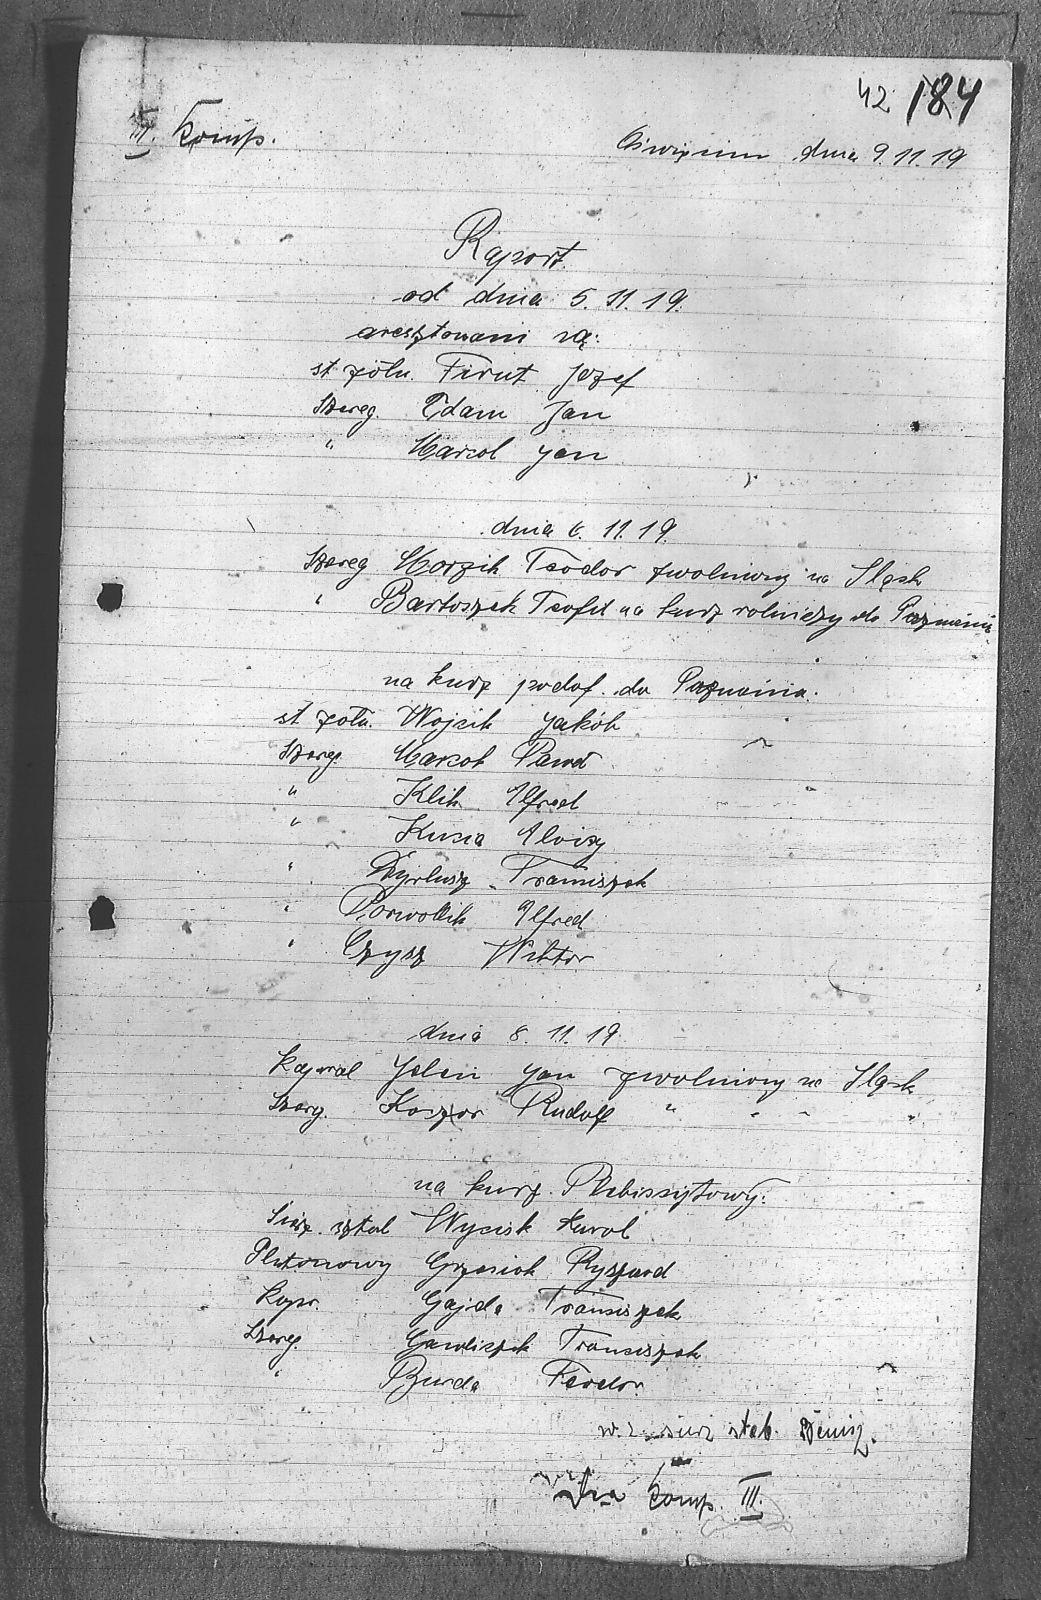 42 184
III. Komp.
Oświęcim dnia 9.11.19
Raport.
od dnia 5.11.19.
aresztowani są:
st. żołn. Firut Józef
Szereg. Adam Jan
" Marcol Jan
dnia 6.11.19.
Szereg Morzik Teodor zwolniony na Śląsk
" Bartoszek Teofil na kurz rolniczy do Poznania
na kurz podof. do Poznania.
st. żołn. Wojcik Jakób
Szereg. Marcol Paweł
" Klik Alfred
" Kuzia Aloizy
" Franciszek
" Porwollik Alfred
" Czysz Wiktor
dnia 8.11.19.
Kapral Jelen Jan zwolniony na Śląsk
Szereg. Koczor Rudolf " " " "
na kurz. Plebiscytowy.
Sierż. sztab Wycisk Karol
Plutonowy Grzesiok Ryszard
Kapr. Gajda Franciszek
Szereg. Gawliczek Franciszek
" Burda Teodor
w. z. sierż stab.
Komp. III.